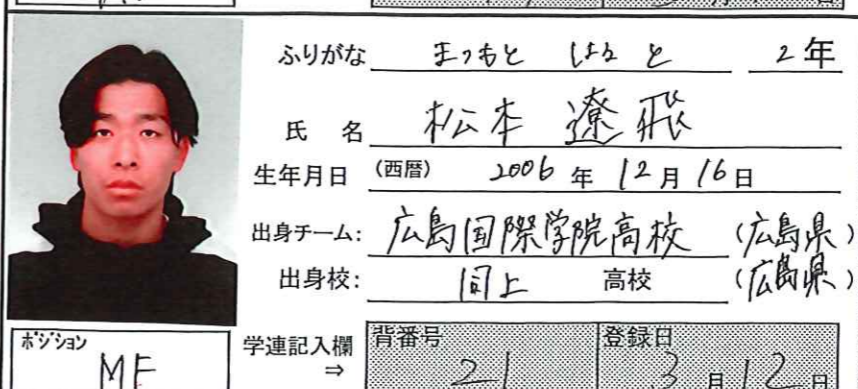 ふりがな まつもと はると 2年
氏名 松本 遼飛
生年月日 (西暦) 2006年12月16日
出身チーム: 広島国際学院高校 (広島県)
出身校: 同上 高校 (広島県)
ポジション MF
学連記入欄 ⇒
背番号 21
登録日 3月12日